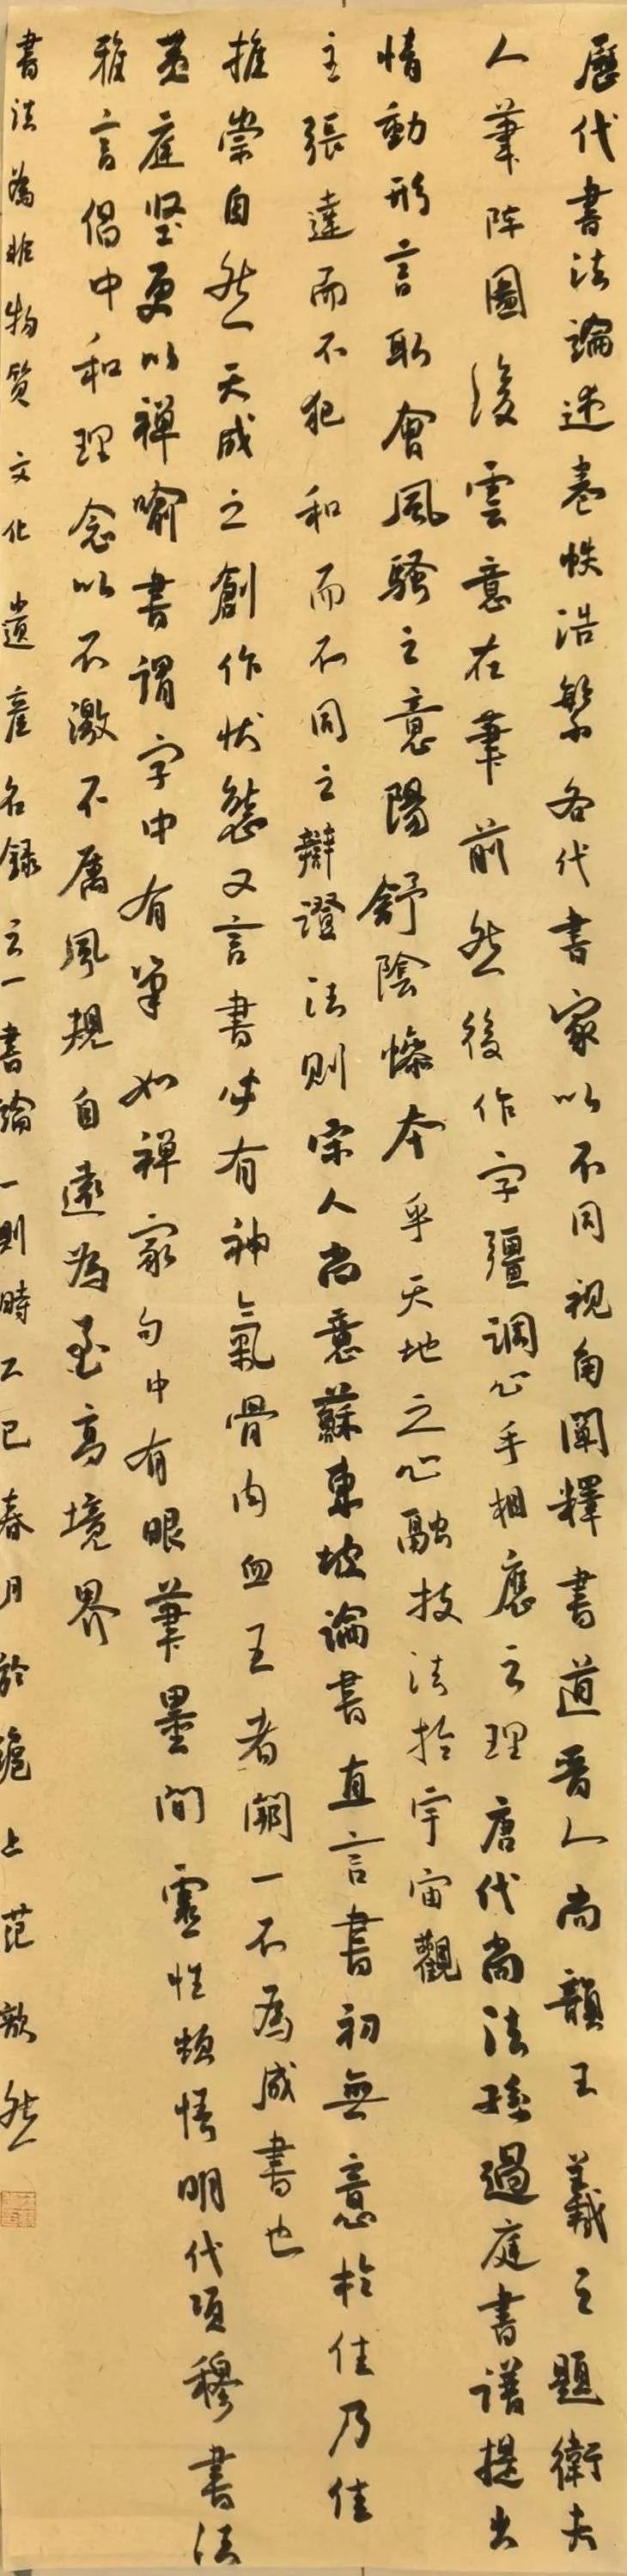 歷代書法論述卷帙浩繁各代書家以不同視角闡釋書道晋人尚韻王羲之題衛夫
人筆阵圖後雲意在筆前然後作字彊調心手相應之理唐代尚法孫過庭書譜提出
情動形言取會風騷之意陽舒陰慘本乎天地之心融技法於宇宙觀
主張違而不犯和而不同之辯證法則宋人尚意蘇東坡論書直言書初無意於佳乃佳
推崇自然天成之創作状態又言書必有神氣骨肉血五者闕一不為成書也
黄庭坚更以禅喻書謂字中有筆如禅家句中有眼筆墨間靈性頓悟明代项穆書法
雅言倡中和理念以不激不厲風規自遠為至高境界
書法為非物質文化遺產名錄之一書論一則時乙巳春月於滬上范歆然